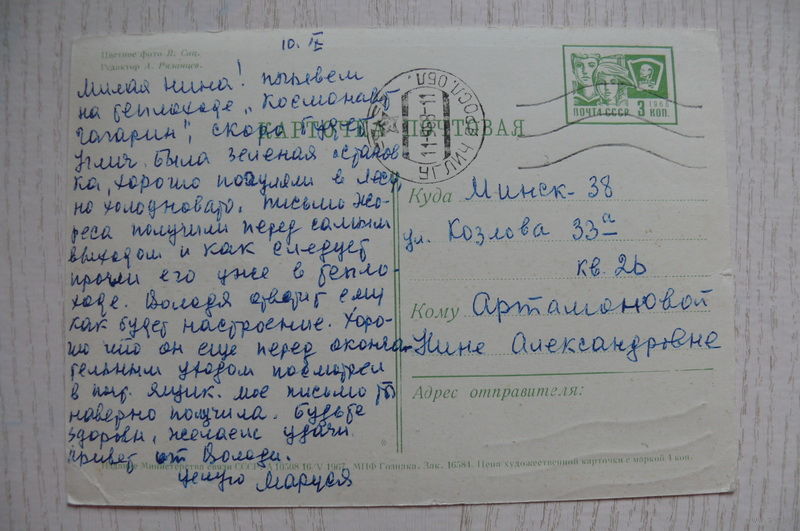 10. IX
Цветное фото В. Сац.
Редактор А. Рязанцев.
Милая Нина! Плывем
на теплоходе „Космонавт
Гагарин", скоро будет
Углич. Была зеленая останов
ка, хорошо погуляли в лесу,
но холодновато. Письмо Жо-
реса получили перед самым
выходом и как следует
прочли его уже в тепло-
ходе. Володя ответит ему
как будет настроение. Хоро-
шо что он еще перед оконча-
тельным уходом посмотрел
в почт. ящик. мое письмо ты
наверно получила. Будьте
здоровы, желаем удачи
Привет от Володи.
Целую Маруся
КАРТОЧКА ПОЧТОВАЯ
УГЛИЧ ЯРОСЛ. ОБЛ.
ПОЧТА СССР 3 КОП.
1966
Куда Минск-38
ул. Козлова 33а
кв. 26
Кому Артамоновой
Нине Александровне
Адрес отправителя:
Издание Министерства связи СССР. А 10508 16/V 1967. МПФ Гознака. Зак. 16584. Цена художественной карточки с маркой 4 коп.